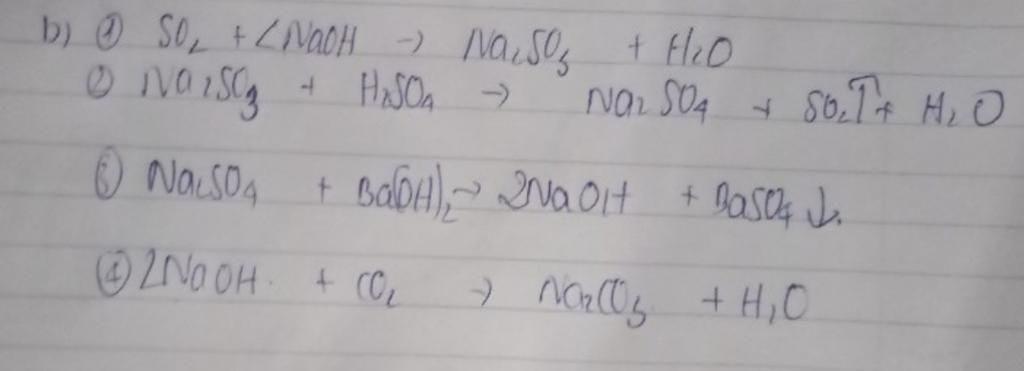 b) ① SO₂ + 2NaOH → Na₂SO₃ + H₂O
② Na₂SO₃ + H₂SO₄ → Na₂SO₄ + SO₂↑ + H₂O
③ Na₂SO₄ + Ba(OH)₂ → 2NaOH + BaSO₄ ↓.
④ 2NaOH + CO₂ → Na₂CO₃ + H₂O